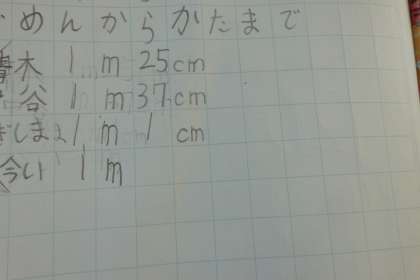 めんからかたまで
青木 1m25cm
谷 1m37cm
じしま 1m1cm
今い 1m